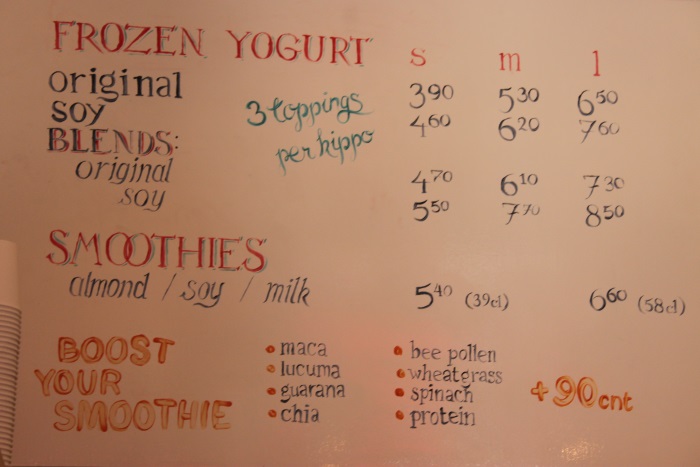 FROZEN YOGURT s m l
original 3 90 5 30 6 50
soy 4 60 6 20 7 60
3 toppings
per hippo
BLENDS:
original 4 70 6 10 7 30
soy 5 50 7 8 50
SMOOTHIES
almond / soy / milk 5 40 (39cl) 6 60 (58cl)
BOOST
YOUR
SMOOTHIE
• maca
• lucuma
• guarana
• chia
• bee pollen
• wheatgrass
• spinach
• protein
+ 90 cnt